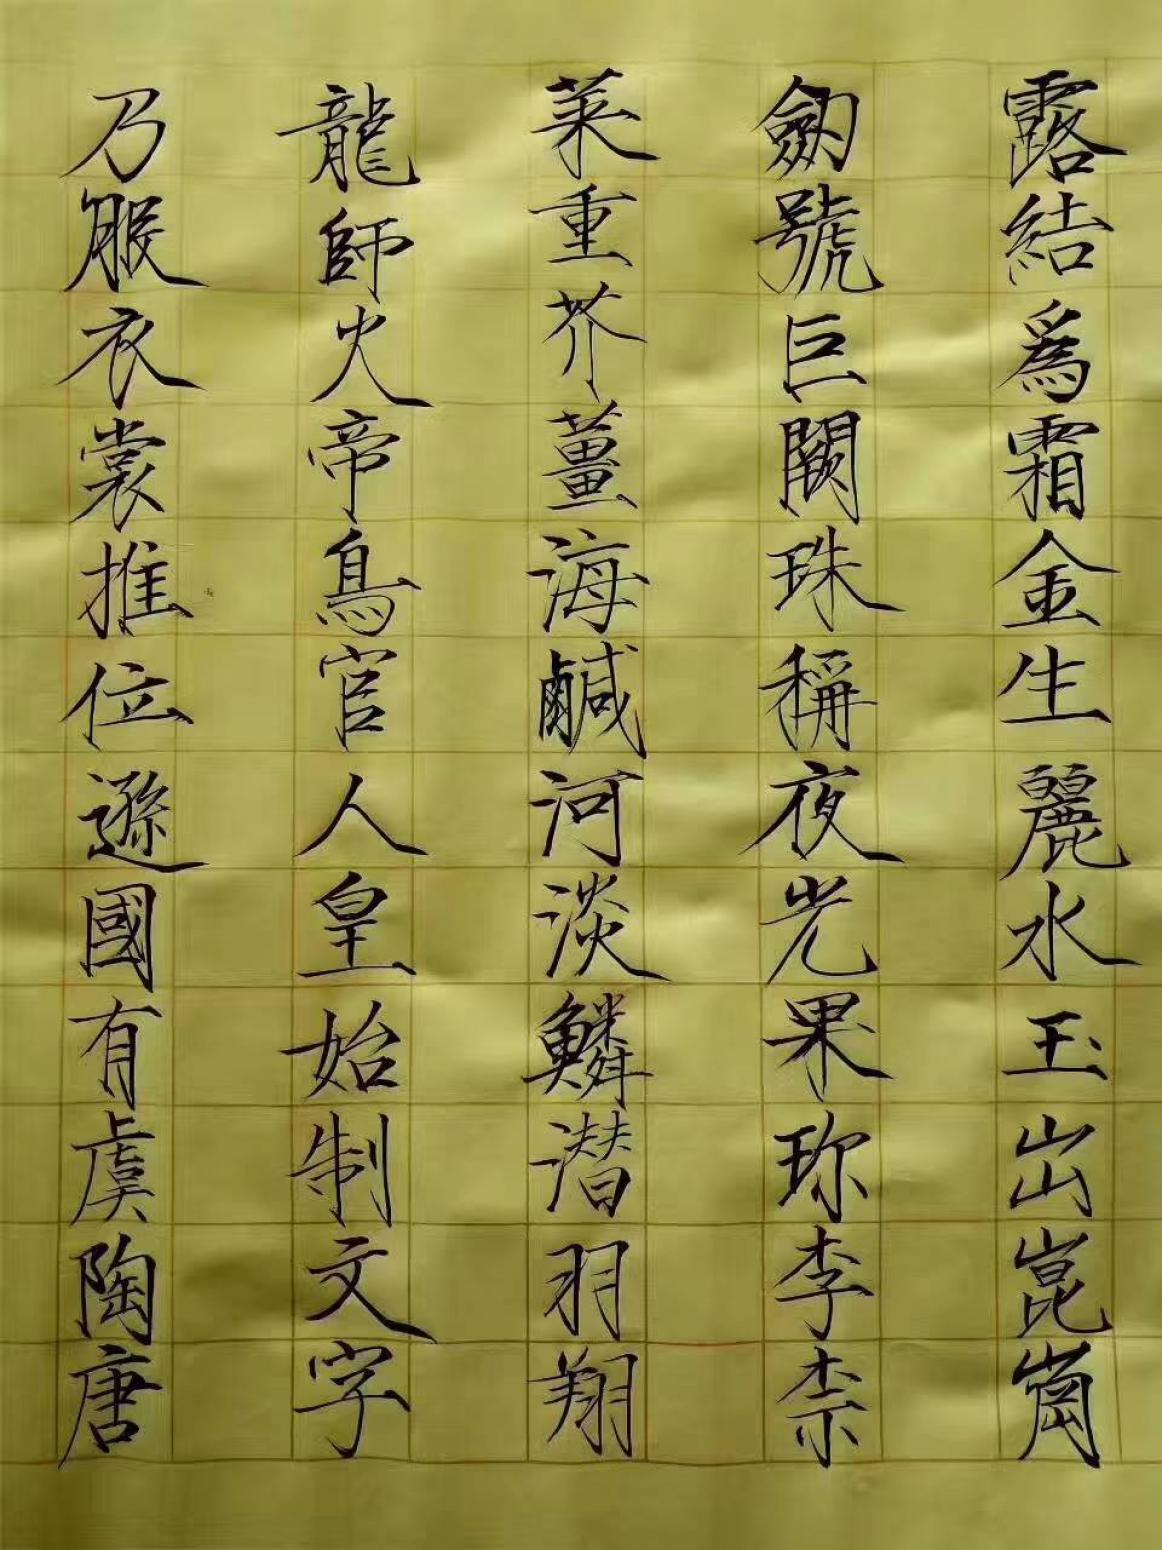 露結爲霜金生麗水玉出崑崗
劒號巨闕珠稱夜光果珎李柰
菜重芥薑海鹹河淡鱗潛羽翔
龍師火帝鳥官人皇始制文字
乃服衣裳推位遜國有虞陶唐